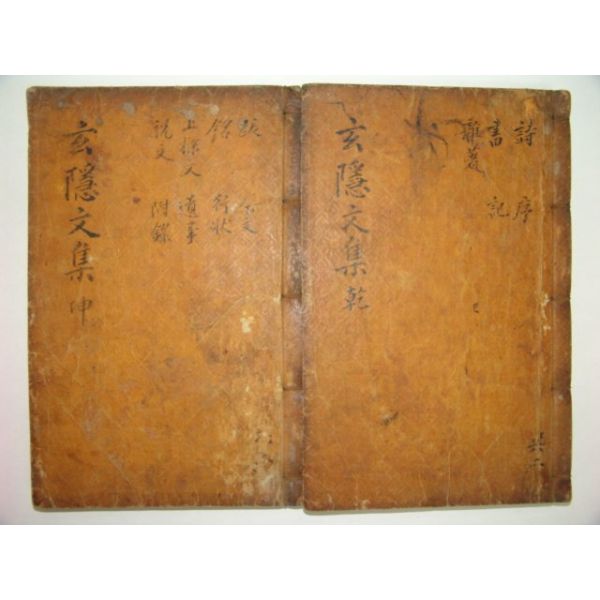 玄隱文集 乾
詩 序
書 記
雜著
共二
玄隱文集 坤
跋 文
銘 行狀
上樑文 遺事
祝文 附錄